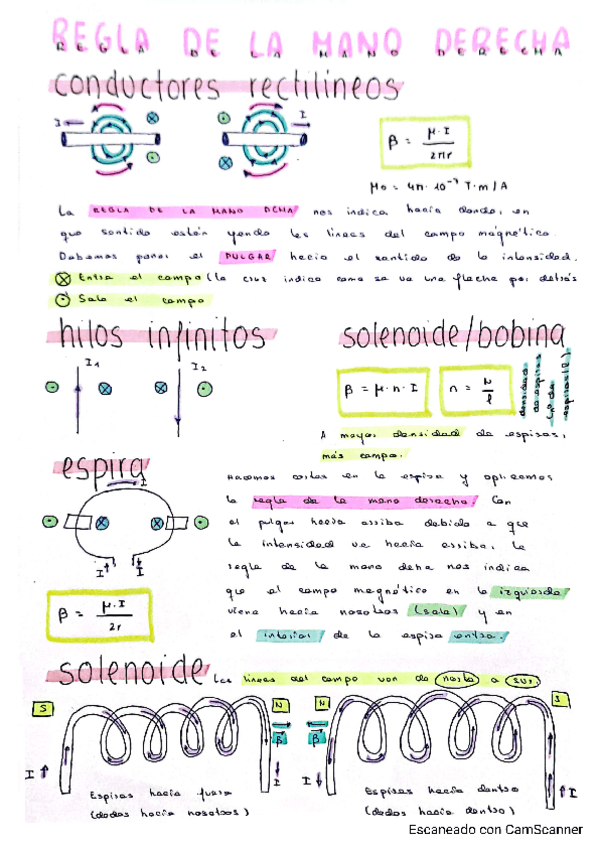 REGLA DE LA MANO DERECHA
REGLA DE LA MANO DERECHA
conductores rectilíneos
I
I
β = μ·I / 2πr
μ0 = 4π·10⁻⁷ T·m/A
La REGLA DE LA MANO DCHA nos indica hacia donde, en
que sentido están yendo las líneas del campo magnético.
Debemos poner el PULGAR hacia el sentido de la intensidad.
⊗ Entra el campo (la cruz indica como se va una flecha por detrás
⊙ Sale el campo
hilos infinitos
I1
I2
solenoide/bobina
β = μ·n·I
n = N/l
densidad
de espiras
(nº de
espiras/l)
A mayor densidad de espiras,
más campo.
espira
I
I
I
β = μ·I / 2r
Hacemos cortes en la espira y aplicamos
la regla de la mano derecha. Con
el pulgar hacia arriba debido a que
la intensidad va hacia arriba, la
regla de la mano dcha nos indica
que el campo magnético en la izquierda
viene hacia nosotros (sale) y en
el interior de la espira entra.
solenoide
Las líneas del campo van de norte a sur.
S
N
β
I
I
Espiras hacia fuera
(dedos hacia nosotros)
N
S
β
I
I
Espiras hacia dentro
(dedos hacia dentro)
Escaneado con CamScanner